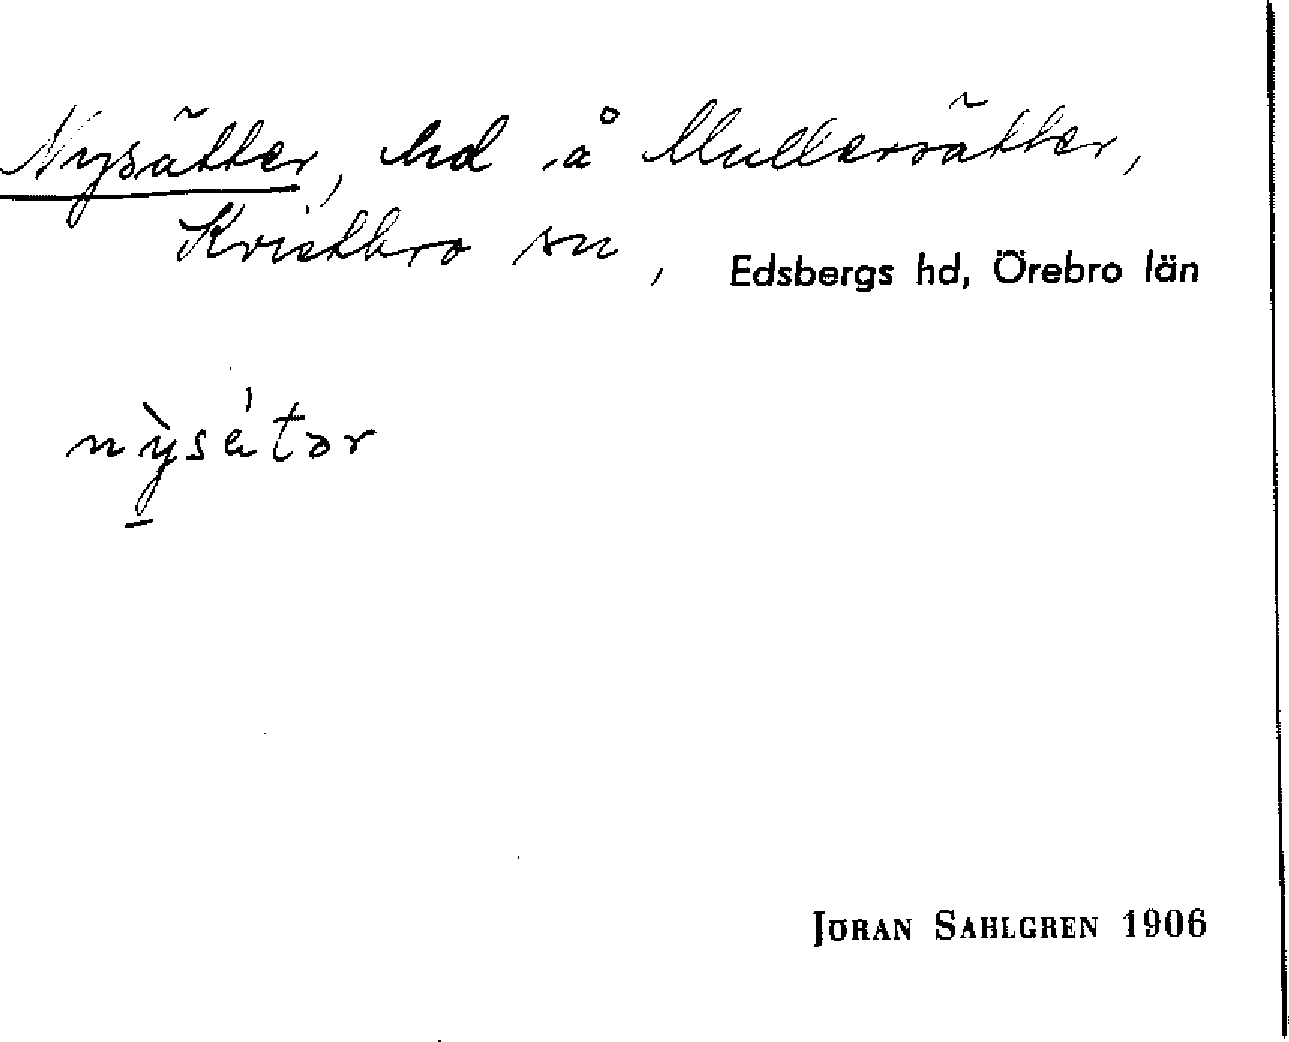 Nysätter, hd å Mullersätter,
Kvistbro sn, Edsbergs hd, Örebro län
nỳsétər
JÖRAN SAHLGREN 1906